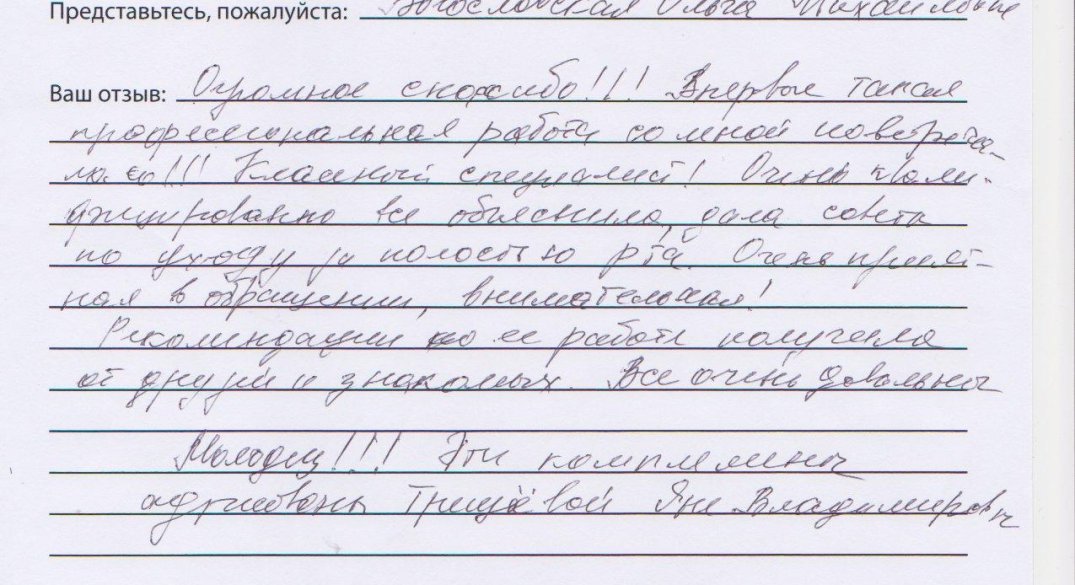 Представьтесь, пожалуйста: Богословская Ольга Михайловна
Ваш отзыв: Огромное спасибо!!! Впервые такая
профессиональная работа со мной повстреча-
ла сь!!! Классный специалист! Очень квали-
фицировано все объяснила, дала советы
по уходу за полостью рта. Очень прият-
ная в обращении, внимательная!
Рекомендации по ее работе получена
от друзей и знакомых. Все очень довольны
Молодец!!! Эти комплементы
адресованы Грищёвой Яне Владимировне